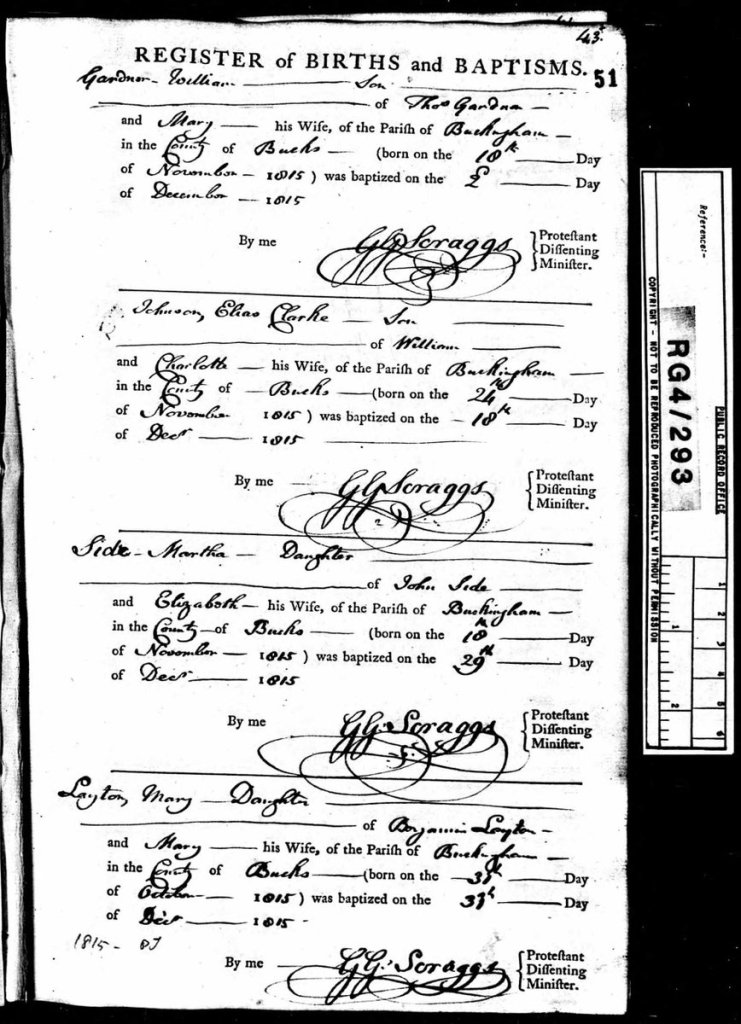 43.
REGISTER of BIRTHS and BAPTISMS. 51
Gardner - William — Son
of Thos Gardner —
and Mary — his Wife, of the Parish of Buckingham —
in the County of Bucks — (born on the 18th — Day
of November — 1815) was baptized on the — Day
of December — 1815
By me G G Scraggs } Protestant
Dissenting
Minister.
Johnson, Elias Clarke — Son
of William —
and Charlotte — his Wife, of the Parish of Buckingham —
in the County of — Bucks — (born on the 24th — Day
of November 1815) was baptized on the — 18th — Day
of Decr — 1815
By me — G G Scraggs { Protestant
Dissenting
Minister.
Side - Martha — Daughter
of John Side —
and Elizabeth — his Wife, of the Parish of Buckingham —
in the County — of Bucks — (born on the 18th — Day
of November — 1815) was baptized on the 29th — Day
of Decr — 1815
By me G G Scraggs { Protestant
Dissenting
Minister.
Layton, Mary — Daughter
of Benjamin Layton —
and Mary — his Wife, of the Parish of Buckingham —
in the County of Bucks — (born on the — 31st — Day
of October — 1815) was baptized on the 31st — Day
of Decr — 1815
1815 -
By me — G G Scraggs { Protestant
Dissenting
Minister.
Reference:-
RG4/293
PUBLIC RECORD OFFICE
COPYRIGHT - NOT TO BE REPRODUCED PHOTOGRAPHICALLY WITHOUT PERMISSION
1
2
3
4
5
6
1
2